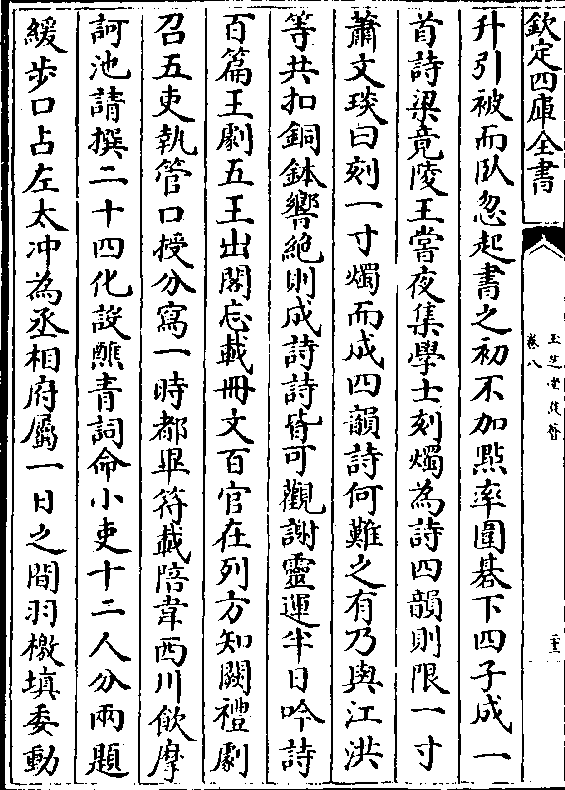 欽定四庫全書
玉芝堂談薈
卷八
升引被而臥忽起書之初不加點率圍棊下四子成一
首詩梁竟陵王嘗夜集學士刻燭為詩四韻則限一寸
蕭文琰曰刻一寸燭而成四韻詩何難之有乃與江洪
等共扣銅鉢響絶則成詩詩皆可觀謝靈運半日吟詩
百篇王劇五王出閤忘載冊文百官在列方知闕禮劇
召五吏執管口授分寫一時都畢符載陪韋西川飲摩
訶池請撰二十四化設醮青詞命小吏十二人分兩題
緩步口占左太冲為丞相府屬一日之間羽檄填委動